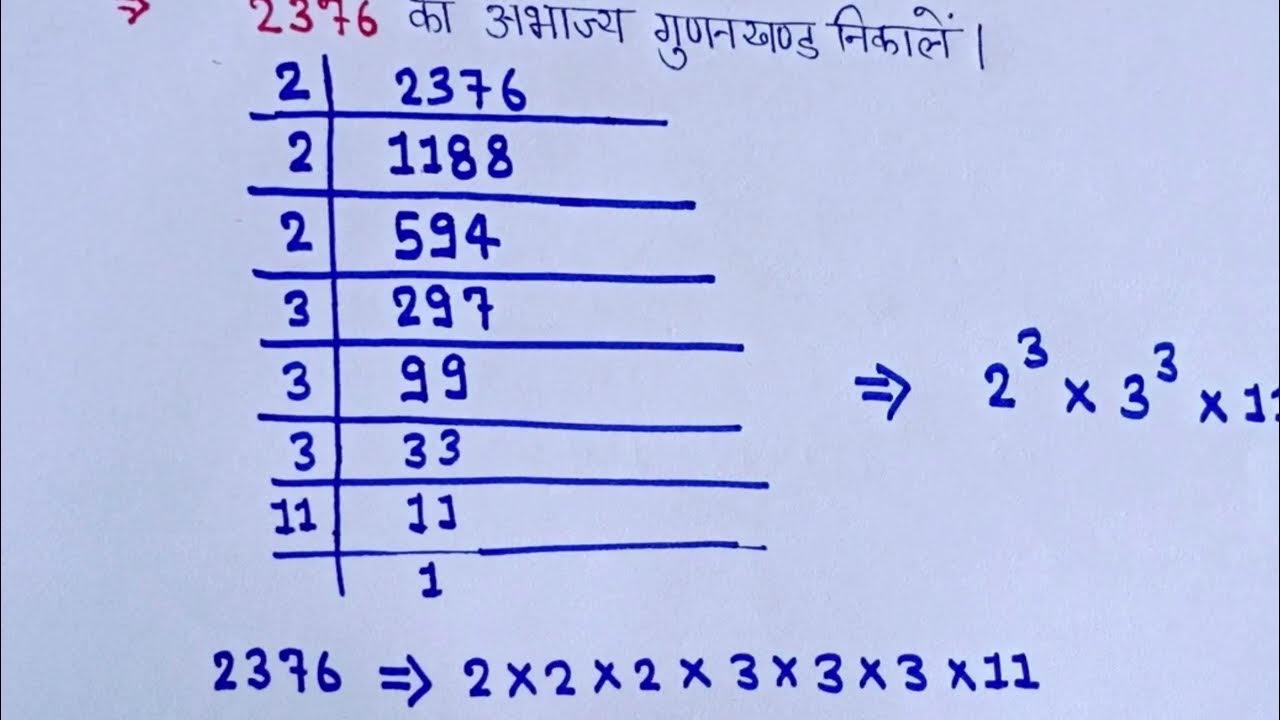 → 2376 का अभाज्य गुणनखण्ड निकालें।
2 | 2376
2 | 1188
2 | 594
3 | 297
3 | 99
3 | 33
11 | 11
1
⇒ 2³ × 3³ × 11
2376 ⇒ 2×2×2×3×3×3×11